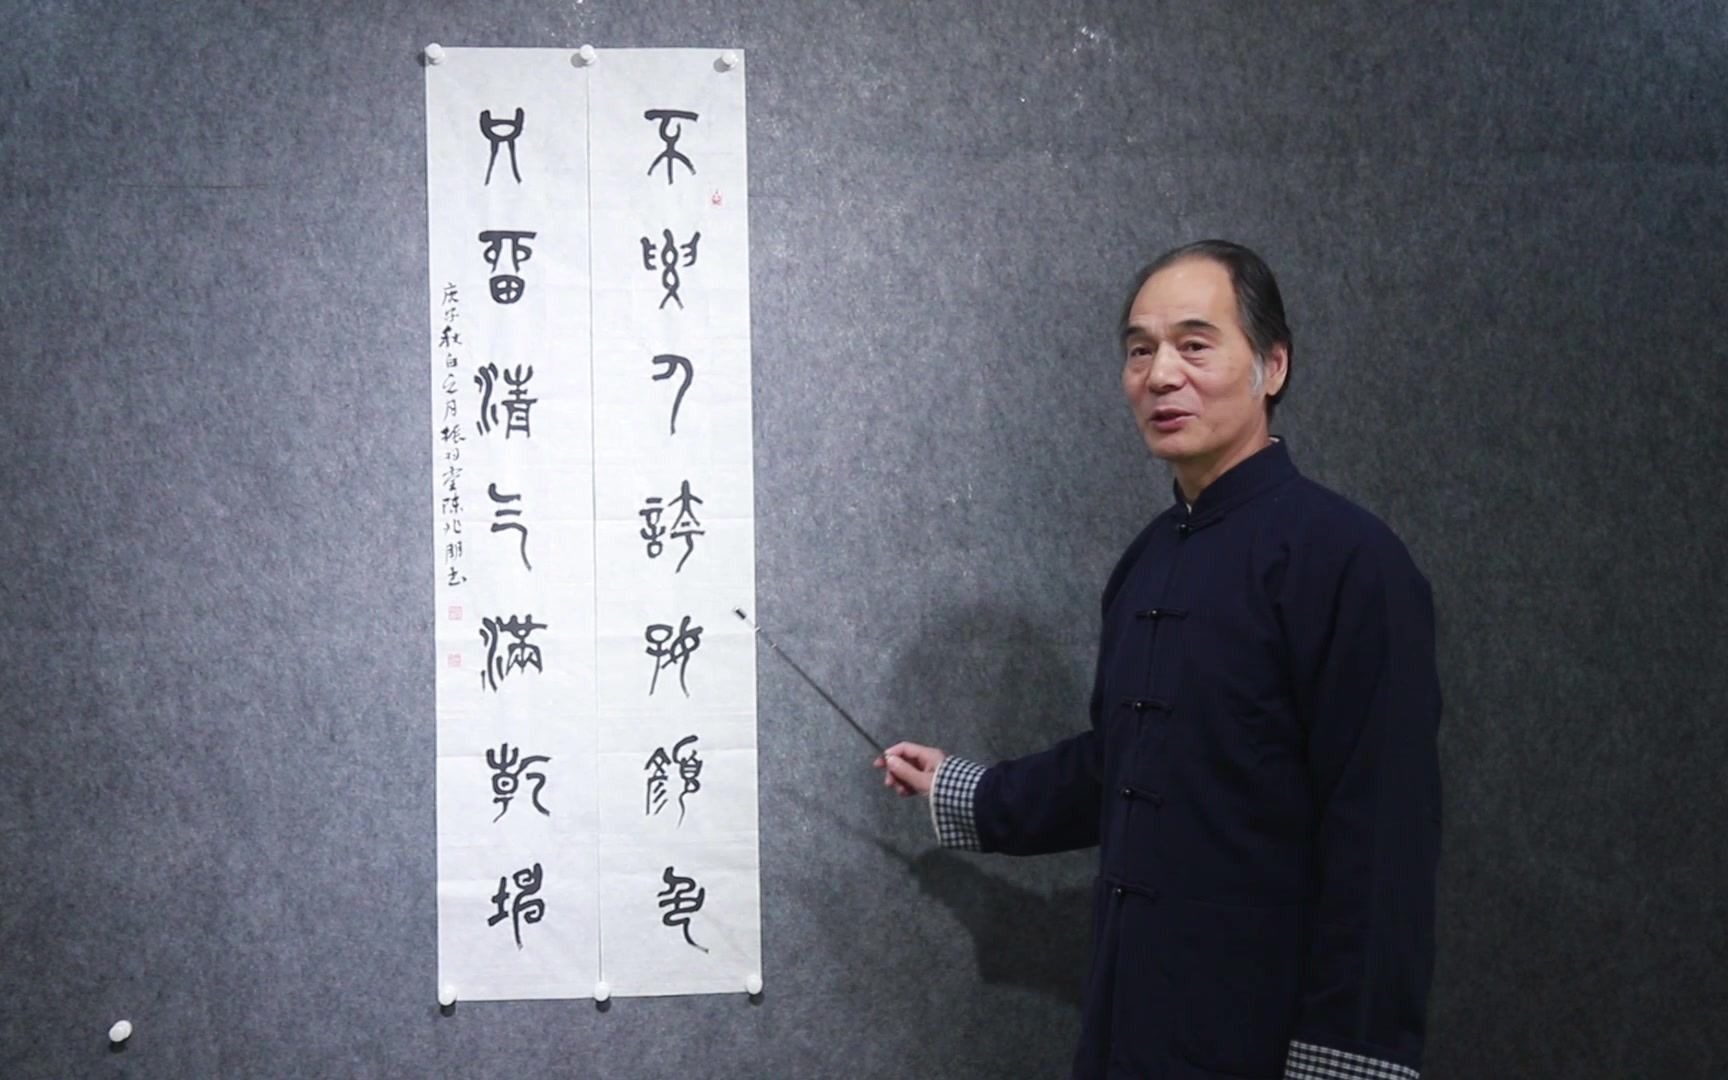 不要人誇好顏色
只留清气滿乾坤
庚子秋白之月振羽堂陈兆朋书